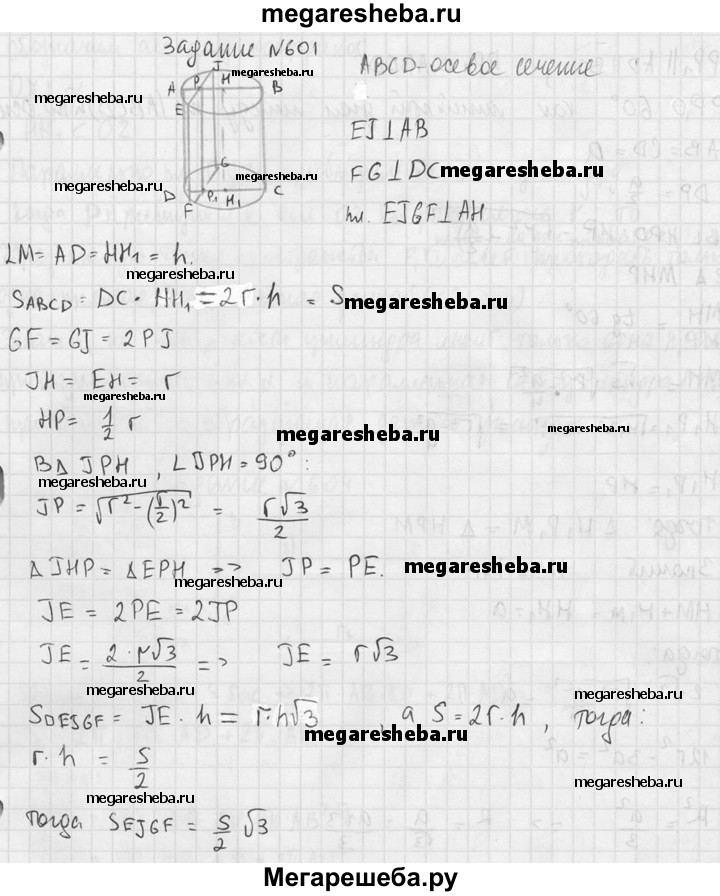 megaresheba.ru
Задание №601
ABCD-осевое сечение
J
A P H B
megaresheba.ru
megaresheba.ru
E
EJ⊥AB
G
FG⊥DC megaresheba.ru
megaresheba.ru
megaresheba.ru
D P₁ H₁ C
F
пл. EJGF⊥AH
LM= AD= HH₁ = h.
megaresheba.ru
S_ABCD = DC · HH₁ = 2r·h = S megaresheba.ru
GF = GJ = 2PJ
JH = EH = r
megaresheba.ru
HP = 1/2 r
megaresheba.ru
В Δ JPH , ∠JPH = 90°:
megaresheba.ru
JP = √(r²-(r/2)²) = r√3/2
ΔJHP = ΔEPH => JP = PE. megaresheba.ru
megaresheba.ru
JE = 2PE = 2JP
JE = 2·r√3/2 => JE = r√3
megaresheba.ru
megaresheba.ru
S_DEJGF = JE · h = r·h√3 , а S = 2r·h , тогда:
megaresheba.ru
r·h = S/2
megaresheba.ru
megaresheba.ru
тогда S_EJGF = S/2 √3
megaresheba.ru
Мегарешеба.ру